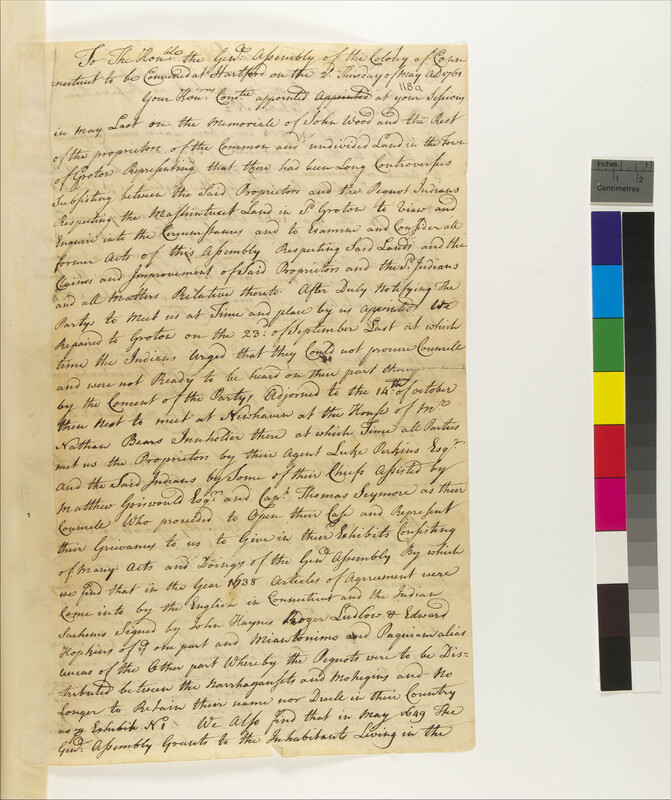 To The Honble the Genll Assembly of the Colony of Conn
necticut to be Convened at Hartford on the 2d Thursday of May AD 1761
118a
Your Honrs Comtte appointed Appointed at your Sessions
in May Last on the Memoriale of John Wood and the Rest
of the proprietors of the Common and undivided Land in the Town
of Groton Representing that there had been Long Controversies
Subsisting between the Said Proprietors and the Pequot Indians
Respecting the Mashintuxet Land in Sd Groton to View and
Enquire into the Circumstances and to Examine and Consider all
former Acts of this Assembly Respecting Said Lands and the
Claimes and Improvement of Said Proprietors and the Sd Indians
and all Matters Relative thereto After Duly Notifying The
Partys to Meet us at Time and place by us appointed We
Repaired to Groton on the 23d of September Last at which
time the Indians Urged that they Could not procure Councile
and were not Ready to be heard on their part
by the Consent of the Partys Adjorned to the 14th of october
then Next to meet at Newhaven at the House of Mr
Nathan Bears Innholder there at which Time all Parties
met us the Proprietors by their Agent Luke Perkins Esqr
and the Said Indians by Some of their Chiefs Assisted by
Matthew Griswould Esqr and Capt Thomas Seymore as their
Councile Who proceeded to Open their Case and Represent
their Grievances to us to Give in their Exhibits Consisting
of Many Acts and Doings of the Genll Assembly By which
we find that in the Year 1638 Articles of Agreement were
Come into by the English in Connecticut and the Indian
Sachems Signed by John Haynes Roger Ludlow & Edward
Hopkins of ye one part and Miantonimo and Paquiam alias
uncas of the Other part Whereby the Pequots were to be Dis-
tributed between the Narrhagansets and Mohegins and No
Longer to Retain their name nor Dwell in their Country
as Exhibit No 1 We Also find that in May 1649 The
Genll Assembly Grants to the Inhabitants Living in the
Inches
1
2
Centimetres